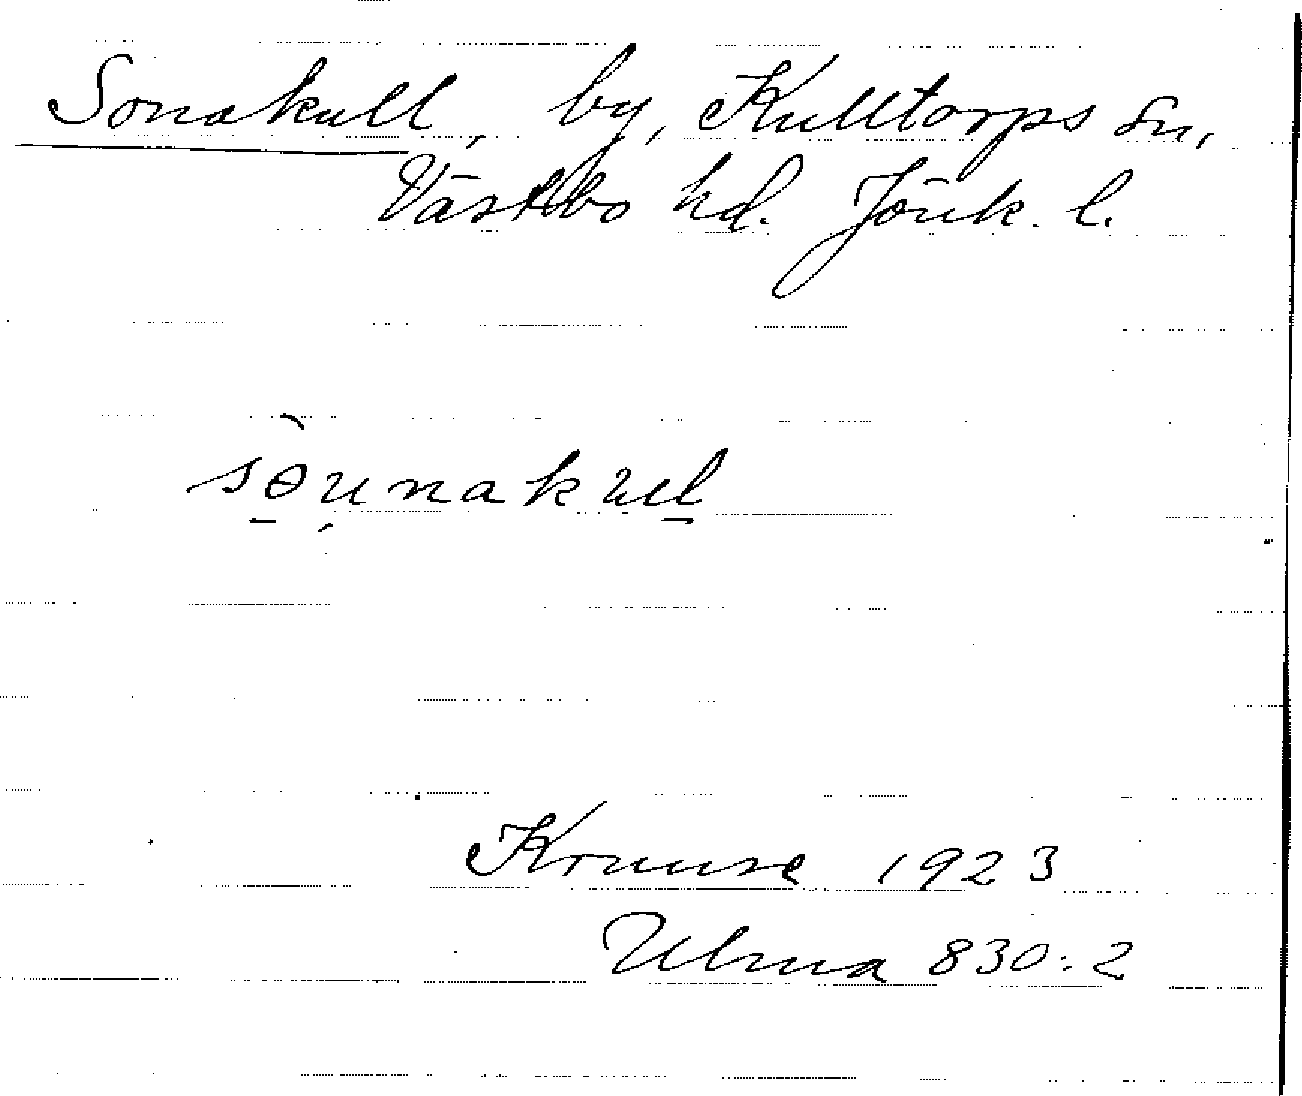 Sonakull, by, Kulltorps sn,
Västbo hd. Jönk. l.
sɵu̯nakul
Kruuse 1923
Ulma 830:2